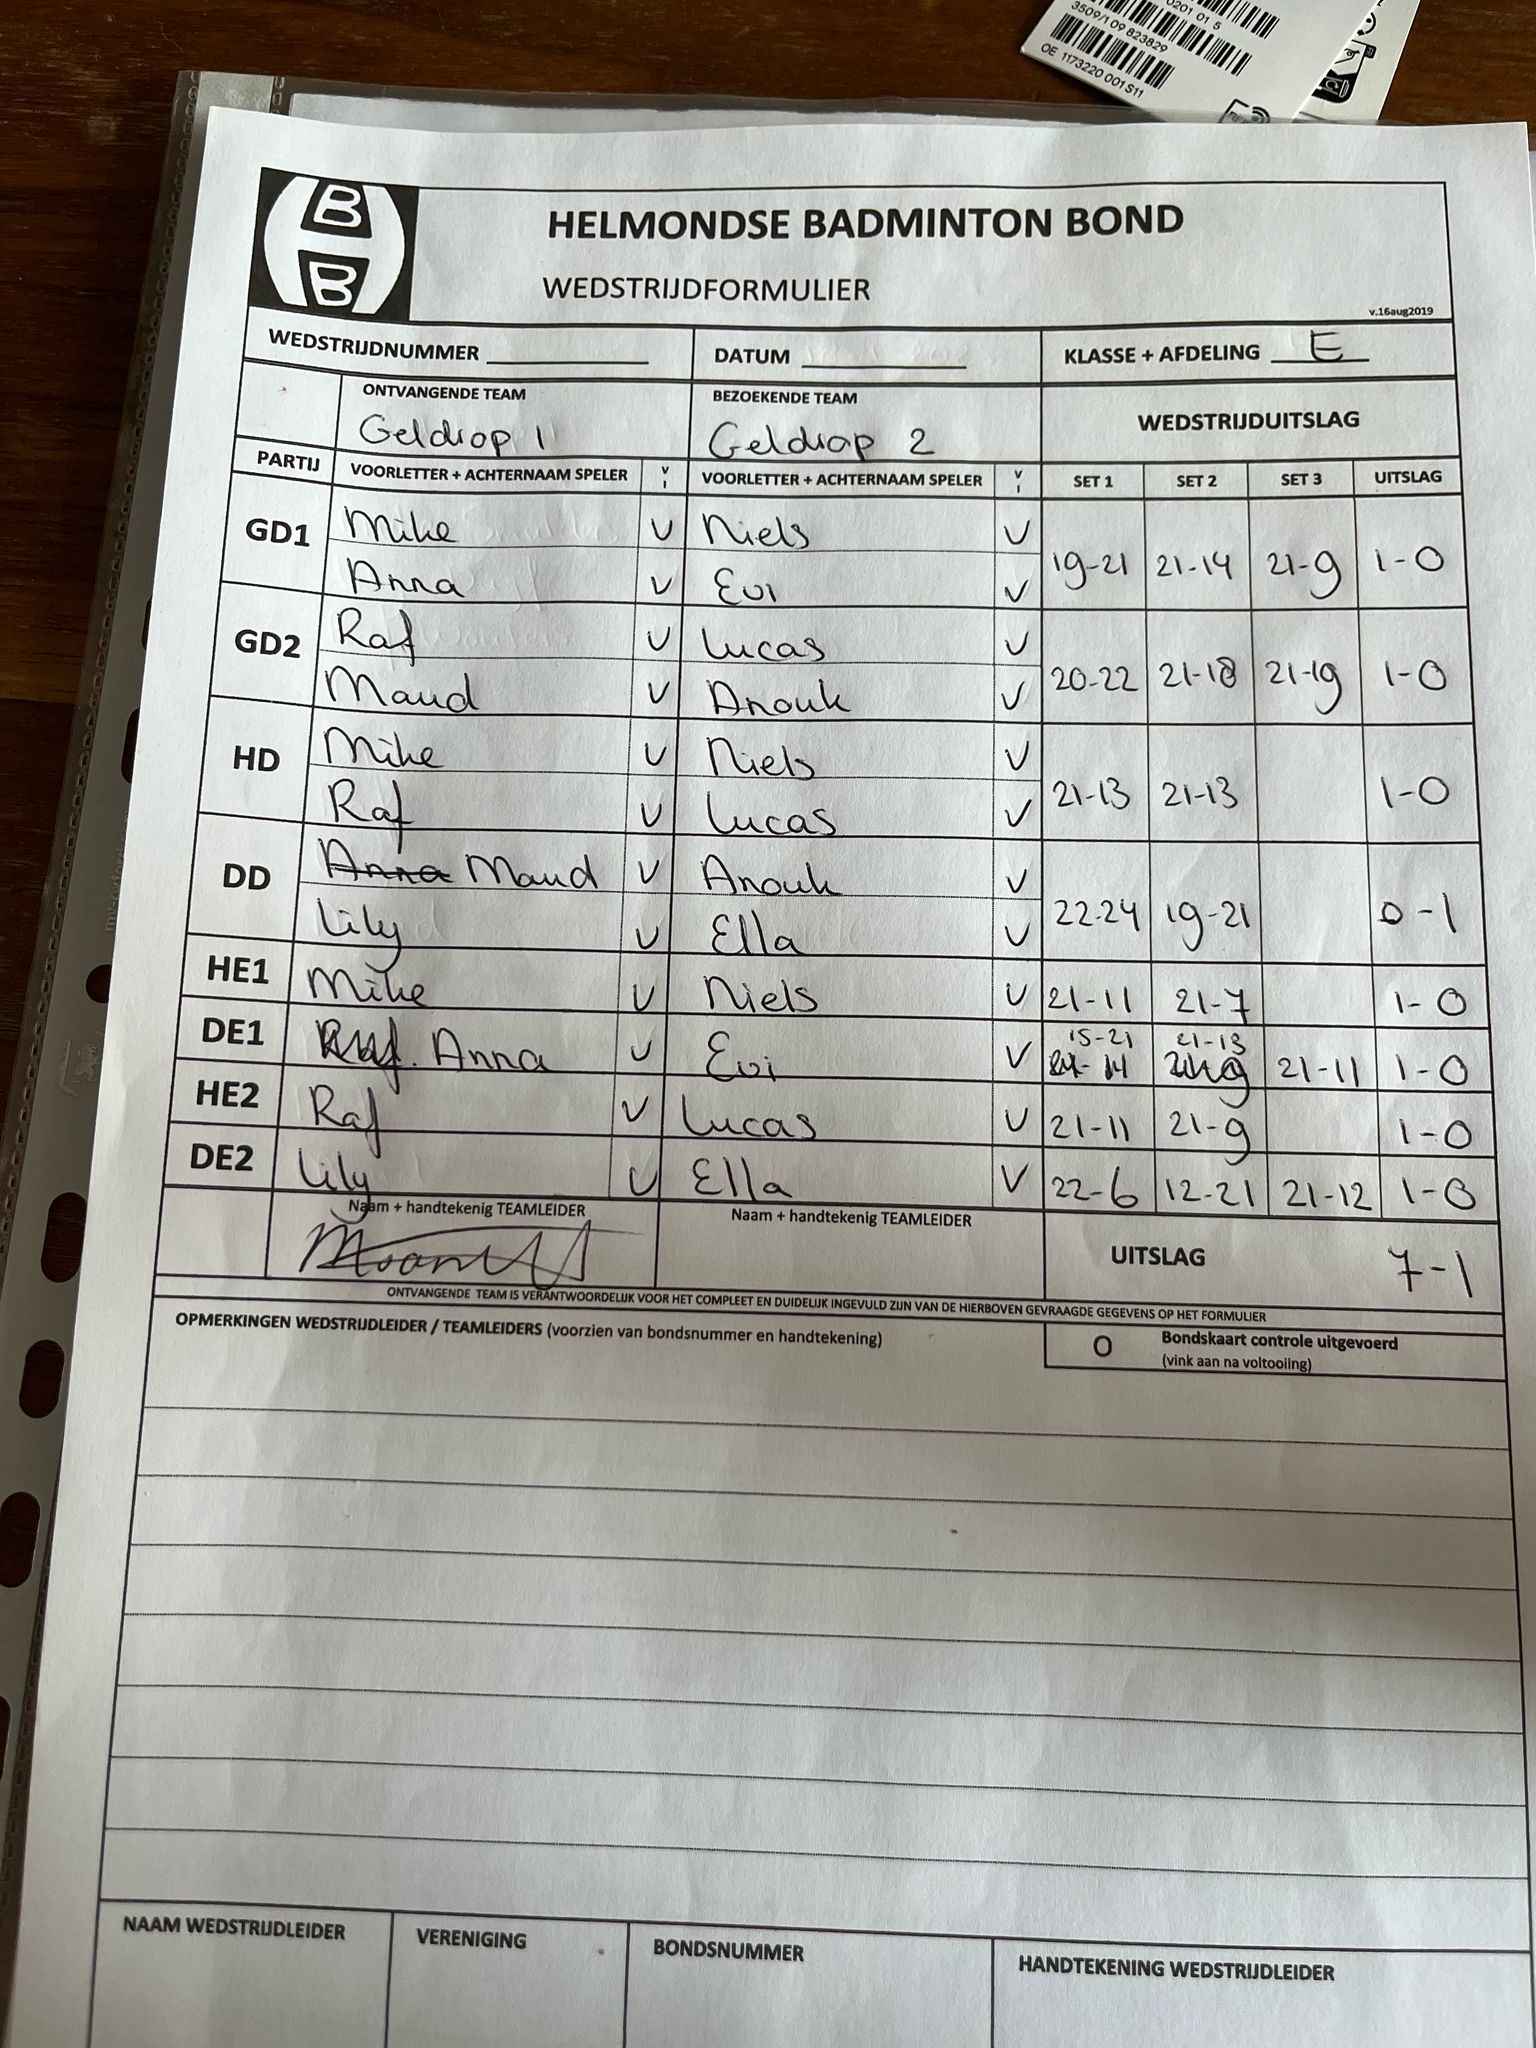 0201 01 5
3509/1 09 823829
OE 1173220 001 S11
B
B
HELMONDSE BADMINTON BOND
WEDSTRIJDFORMULIER
v.16aug2019
WEDSTRIJDNUMMER DATUM KLASSE + AFDELING E
ONTVANGENDE TEAM BEZOEKENDE TEAM WEDSTRIJDUITSLAG
Geldrop 1 Geldrop 2
PARTIJ VOORLETTER + ACHTERNAAM SPELER V I VOORLETTER + ACHTERNAAM SPELER V I SET 1 SET 2 SET 3 UITSLAG
GD1 Mike V Niels V 19-21 21-14 21-9 1-0
Anna V Evi V
GD2 Raf V Lucas V 20-22 21-18 21-19 1-0
Maud V Anouk V
HD Mike V Niels V 21-13 21-13 1-0
Raf V Lucas V
DD Anna Maud V Anouk V 22-24 19-21 0-1
Lily V Ella V
HE1 Mike V Niels V 21-11 21-7 1-0
15-21 21-13
DE1 Raf. Anna V Evi V 21-11 1-0
HE2 Raf V Lucas V 21-11 21-9 1-0
DE2 Lily V Ella V 22-6 12-21 21-12 1-0
Naam + handtekenig TEAMLEIDER Naam + handtekenig TEAMLEIDER UITSLAG 7-1
ONTVANGENDE TEAM IS VERANTWOORDELIJK VOOR HET COMPLEET EN DUIDELIJK INGEVULD ZIJN VAN DE HIERBOVEN GEVRAAGDE GEGEVENS OP HET FORMULIER
OPMERKINGEN WEDSTRIJDLEIDER / TEAMLEIDERS (voorzien van bondsnummer en handtekening)
O Bondskaart controle uitgevoerd
(vink aan na voltooiing)
NAAM WEDSTRIJDLEIDER VERENIGING BONDSNUMMER HANDTEKENING WEDSTRIJDLEIDER